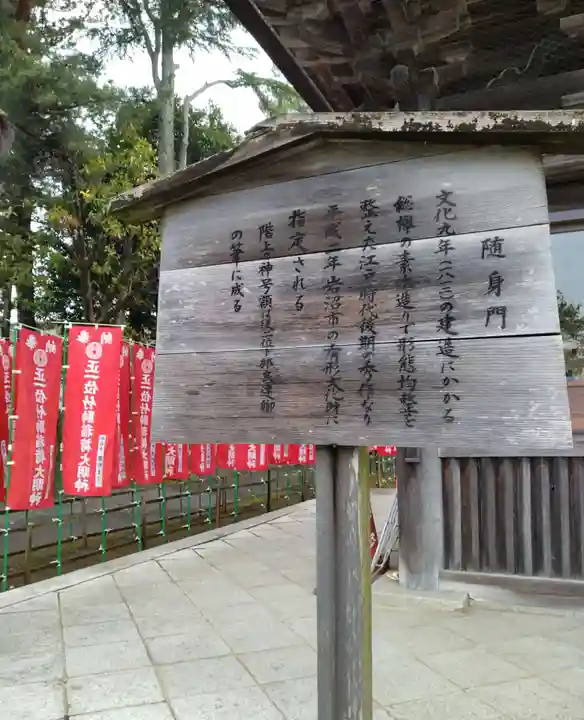 随身門
文化九年(一八一二)の建造にかかる
総欅の素木造りで形態均整を
整えた江戸時代後期の秀作なり
平成一年岩沼市の有形文化財に
指定される
階上の神号額は従二位卜部良連卿
の筆に成る
奉納
正一位竹駒稲荷大明神
正一位竹駒稲荷大明神
正一位竹駒稲荷大明神